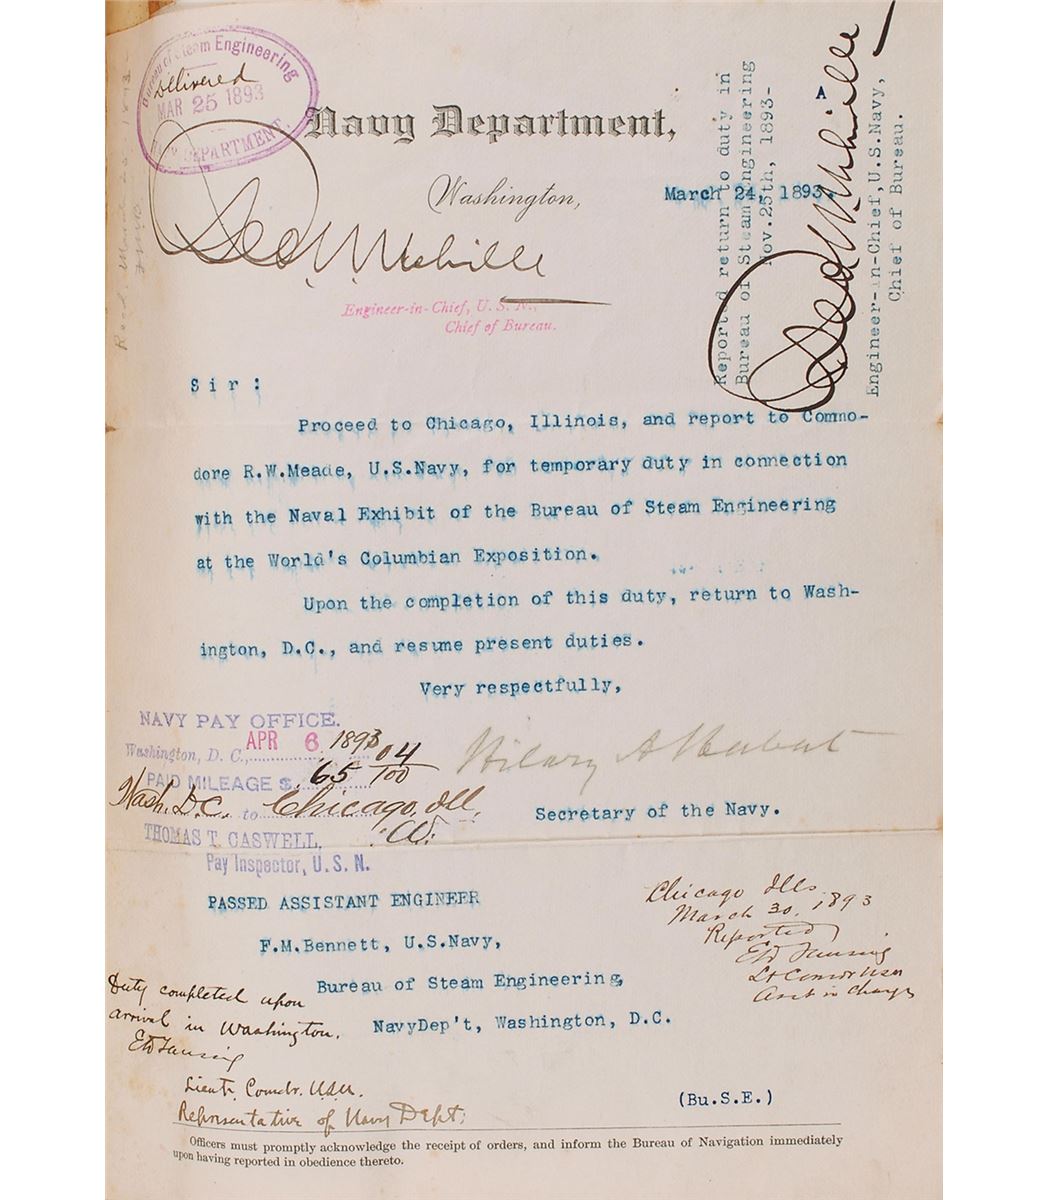 Bureau of Steam Engineering
Delivered
MAR 25 1893
NAVY DEPARTMENT.
Navy Department,
Washington,
March 24, 1893.
Geo. W. Melville
Engineer-in-Chief, U. S. N.,
Chief of Bureau.
Reported return to duty in
Bureau of Steam Engineering
Nov.25th, 1893-
Geo W Melville
Engineer-in-Chief,U.S.Navy,
Chief of Bureau.
Sir:
Proceed to Chicago, Illinois, and report to Commo-
dore R.W.Meade, U.S.Navy, for temporary duty in connection
with the Naval Exhibit of the Bureau of Steam Engineering
at the World's Columbian Exposition.
Upon the completion of this duty, return to Wash-
ington, D.C., and resume present duties.
Very respectfully,
Hilary A Herbert
Secretary of the Navy.
NAVY PAY OFFICE.
Washington, D. C., APR 6 1893
PAID MILEAGE $ 65 04/100
Wash. D.C. to Chicago, Ill.
THOMAS T. CASWELL,
Pay Inspector, U. S. N.
PASSED ASSISTANT ENGINEER
F.M.Bennett, U.S.Navy,
Bureau of Steam Engineering,
NavyDep't, Washington, D.C.
Chicago Ills.
March 30, 1893
Reported
Lt Comdr USN
Asst in charge
Duty completed upon
arrival in Washington.
Lieut. Comdr. U.S.N.
Representative of Navy Dept.
(Bu.S.E.)
Officers must promptly acknowledge the receipt of orders, and inform the Bureau of Navigation immediately
upon having reported in obedience thereto.